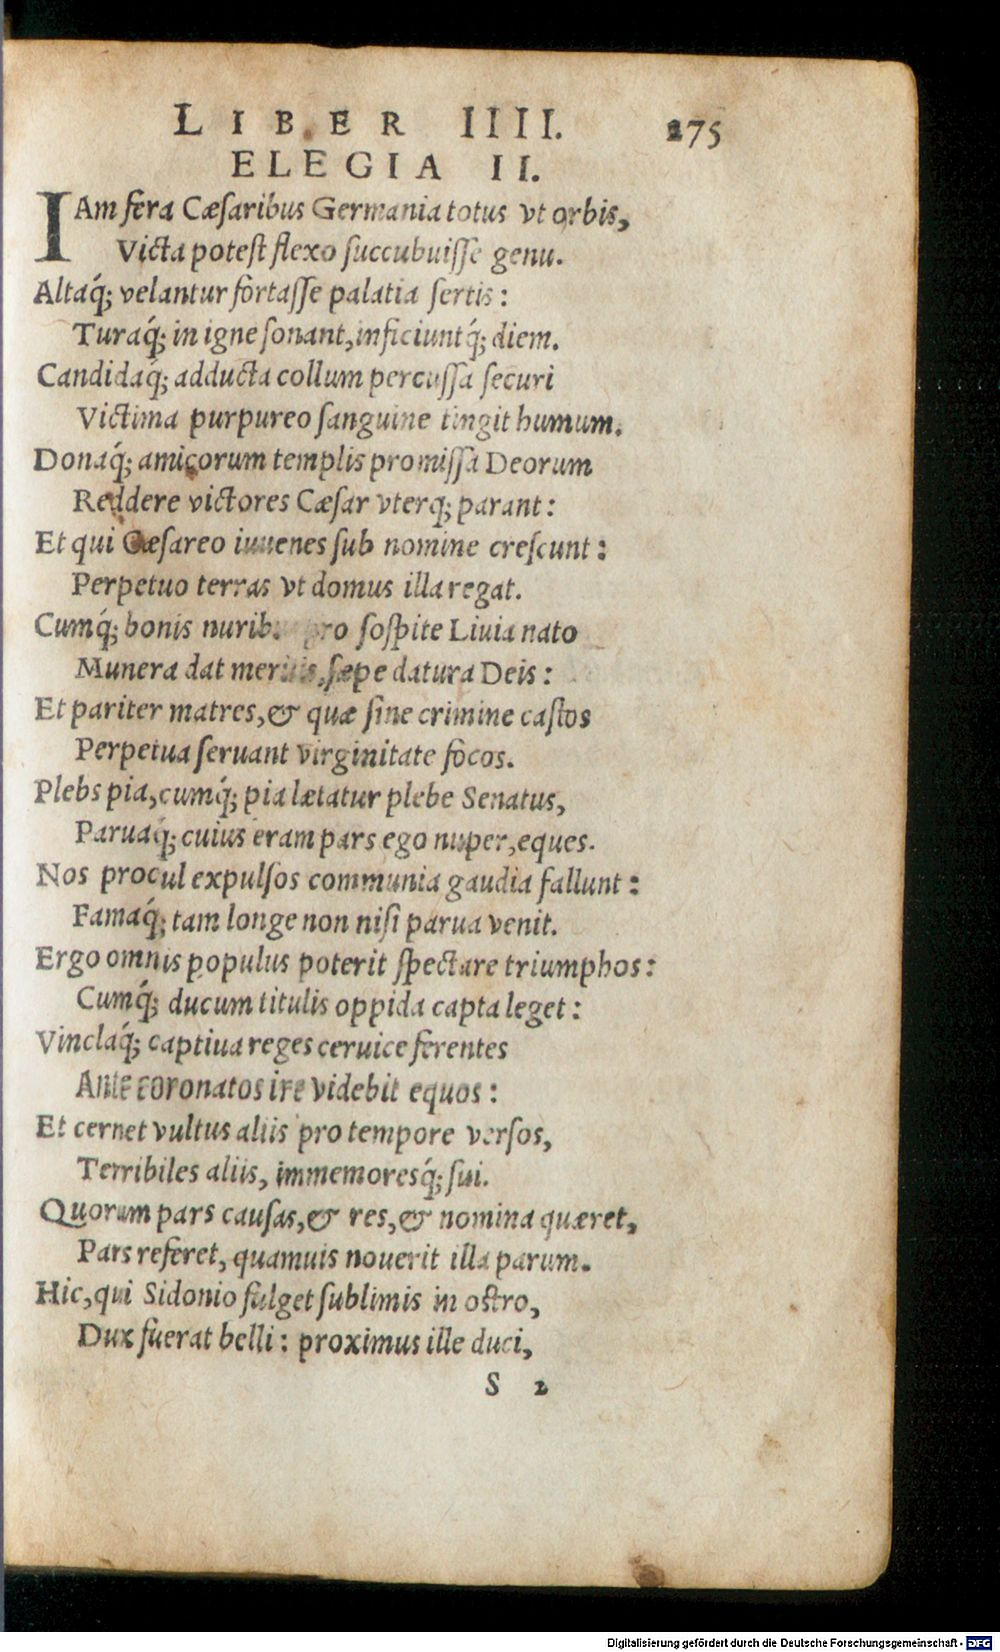 LIBER IIII. 275
ELEGIA II.
IAm fera Cæſaribus Germania totus vt orbis,
Victa poteſt flexo ſuccubuiſſe genu.
Altaq́; velantur fortaſſe palatia ſertis:
Turaq́; in igne ſonant, inficiuntq́; diem.
Candidaq́; adducta collum percuſſa ſecuri
Victima purpureo ſanguine tingit humum.
Donaq́; amicorum templis promiſſa Deorum
Reddere victores Cæſar vterq; parant:
Et qui Cæſareo iuuenes ſub nomine creſcunt:
Perpetuo terras vt domus illa regat.
Cumq́; bonis nurib. pro ſoſpite Liuia nato
Munera dat meritis, ſæpe datura Deis:
Et pariter matres, & quæ ſine crimine caſtos
Perpetua ſeruant virginitate focos.
Plebs pia, cumq́; pia lætatur plebe Senatus,
Paruaq́; cuius eram pars ego nuper, eques.
Nos procul expulſos communia gaudia fallunt:
Famaq́; tam longe non niſi parua venit.
Ergo omnis populus poterit ſpectare triumphos:
Cumq́; ducum titulis oppida capta leget:
Vinclaq́; captiua reges ceruice ferentes
Ante coronatos ire videbit equos:
Et cernet vultus aliis pro tempore verſos,
Terribiles aliis, immemoresq́; ſui.
Quorum pars cauſas, & res, & nomina quæret,
Pars referet, quamuis nouerit illa parum.
Hic, qui Sidonio fulget ſublimis in oſtro,
Dux fuerat belli: proximus ille duci,
S 2
Digitalisierung gefördert durch die Deutsche Forschungsgemeinschaft - DFG